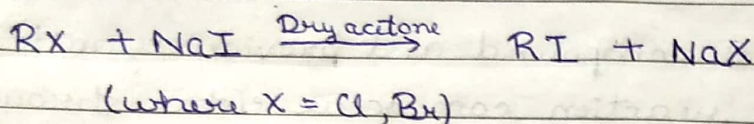 RX + NaI Dry acetone → RI + NaX
(where X = Cl, Br)